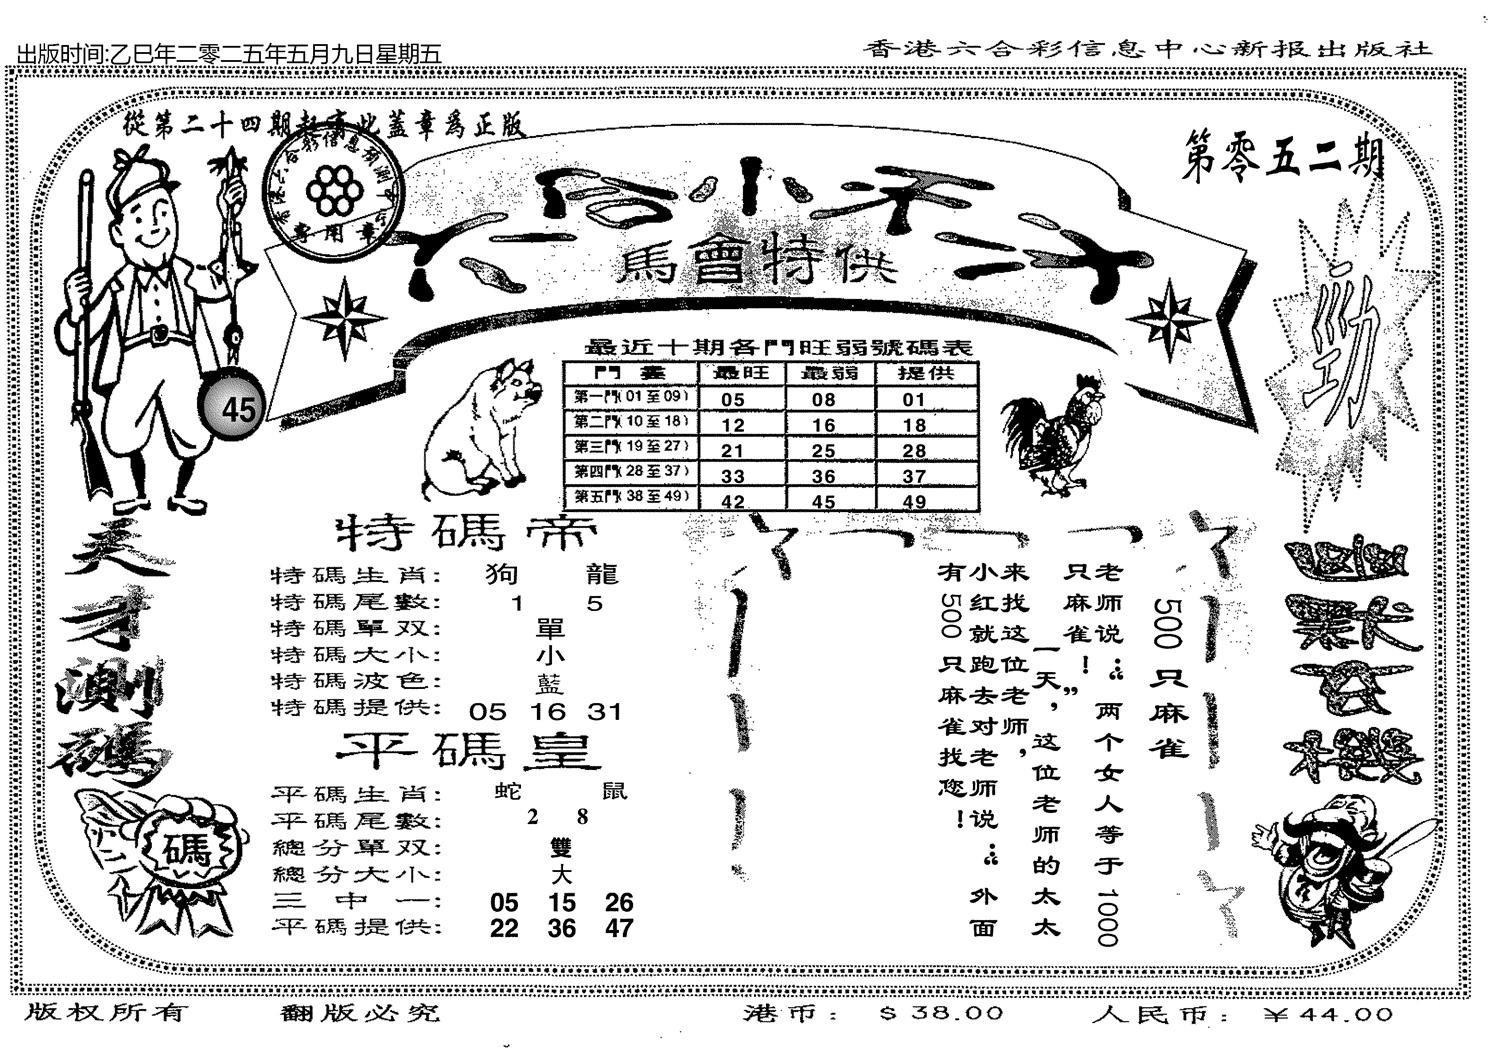 出版时间:乙巳年二零二五年五月九日星期五
香港六合彩信息中心新报出版社
從第二十四期起有此蓋章爲正版
第零五二期
香港六合彩信息預測中心
專用章
馬會特供
勁
45
最近十期各門旺弱號碼表
門 最旺 最弱 提供
第一門(01至09) 05 08 01
第二門(10至18) 12 16 18
第三門(19至27) 21 25 28
第四門(28至37) 33 36 37
第五門(38至49) 42 45 49
天才測碼
碼
特碼帝
特碼生肖: 狗 龍
特碼尾數: 1 5
特碼單双: 單
特碼大小: 小
特碼波色: 藍
特碼提供: 05 16 31
平碼皇
平碼生肖: 蛇 鼠
平碼尾數: 2 8
總分單双: 雙
總分大小: 大
三中一: 05 15 26
平碼提供: 22 36 47
500只麻雀
老师说:“两个女人等于1000
只麻雀!”
一天,这位老师的太太
来找这位老师,
小红就跑去对老师说:“外面
有500只麻雀找您!
版权所有
翻版必究
港币: $38.00
人民币: ¥44.00